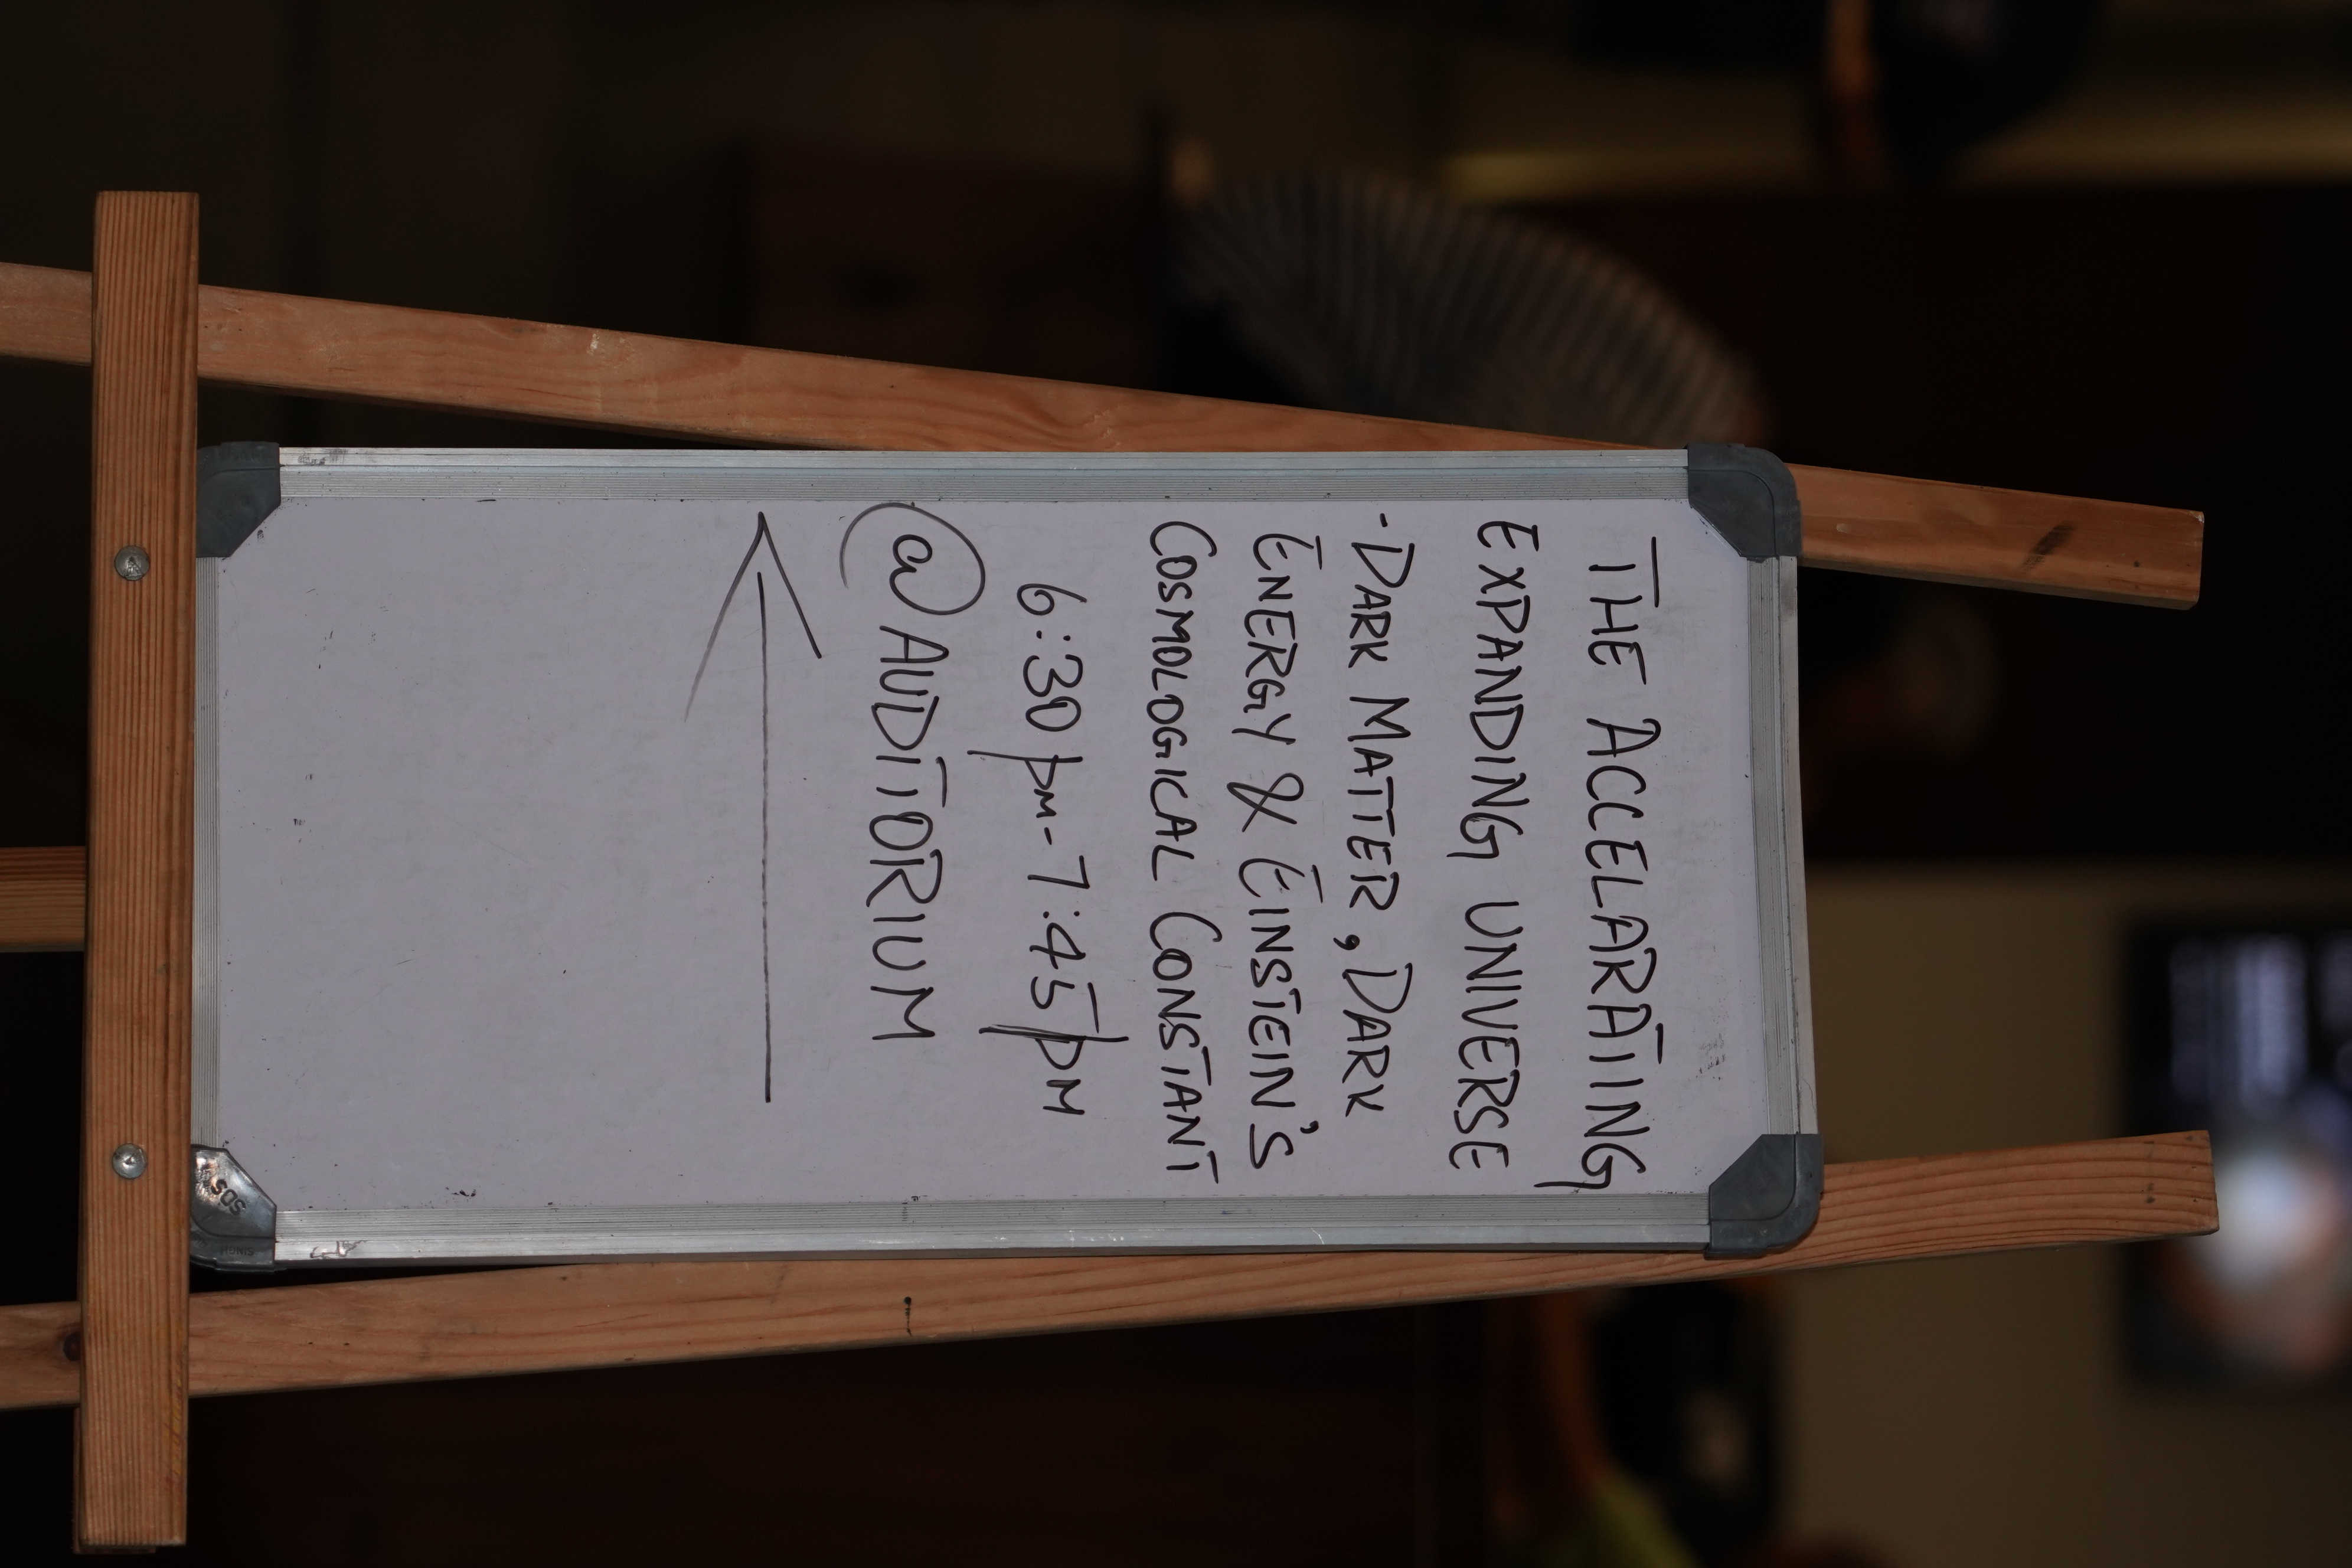 THE ACCELARATING
EXPANDING UNIVERSE
- DARK MATTER, DARK
ENERGY & EINSTEIN'S
COSMOLOGICAL CONSTANT
6:30 pm - 7:45 pm
@ AUDITORIUM
←
SDS